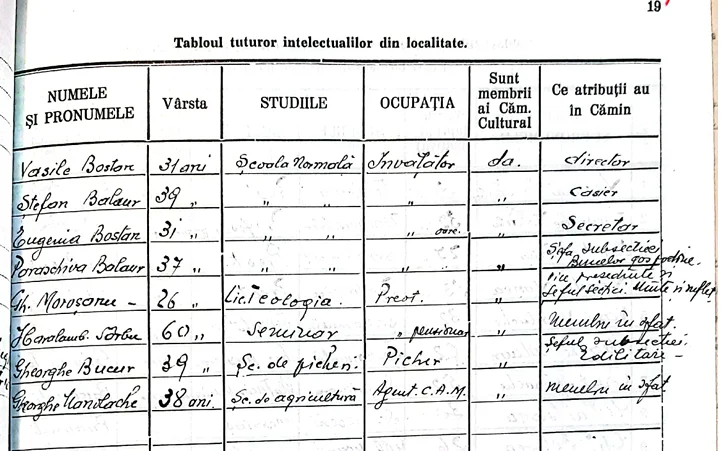 19
Tabloul tuturor intelectualilor din localitate.
NUMELE ȘI PRONUMELE Vârsta STUDIILE OCUPAȚIA Sunt membrii ai Căm. Cultural Ce atribuții au în Cămin
Vasile Bostan 31 ani Școala Normală Învățător da. director
Ștefan Balaur 39 " " " " " Casier
Eugenia Bostan 31 " " " " oare. " Secretar
Paraschiva Balaur 37 " " " " " Șefa subsecției Bunelor gospodine.
Gh. Moroșanu – 26 " Lic. Teologia. Preot. " vice președinte și șeful secției minte și suflet
Haralamb. Sârbu 60 " Seminar " pensionar " Membru în sfat.
Gheorghe Bucur 39 " Șc. de picheri. Picher " Șeful subsecției. Edilitare –
Gheorghe Manolache 38 ani. Șc. de agricultură Agent. C.A.M. " membru în sfat